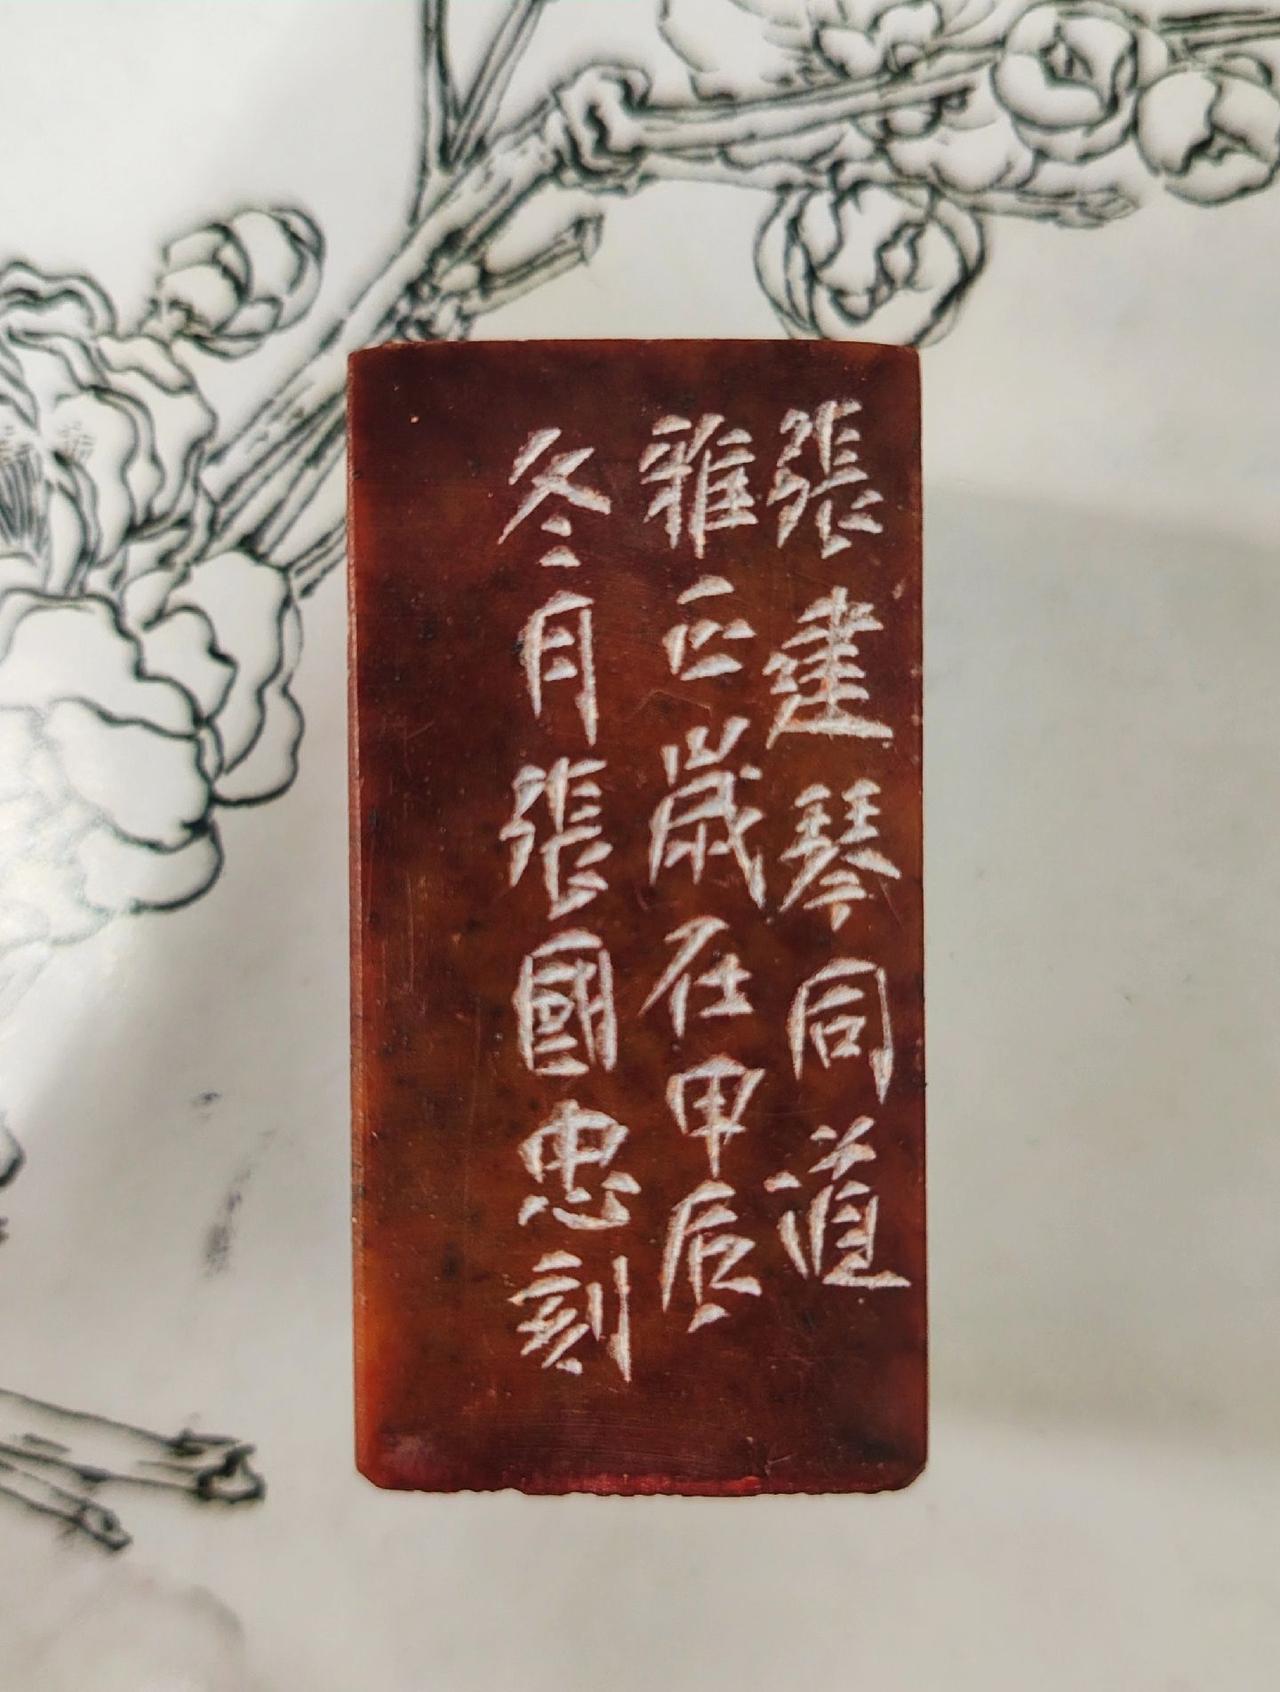 張建琴同道
雅正歲在甲辰
冬月張國忠刻